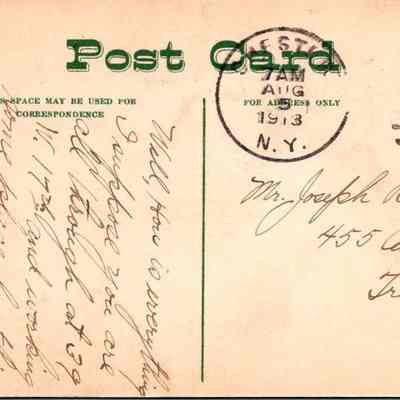 Post Card
SPACE MAY BE USED FOR
CORRESPONDENCE
FOR ADDRESS ONLY
7AM
AUG
1913
N.Y.
Well, how is everything
I suppose you are
all through at 39
W. 17th and working
Mr. Joseph
455
Tr